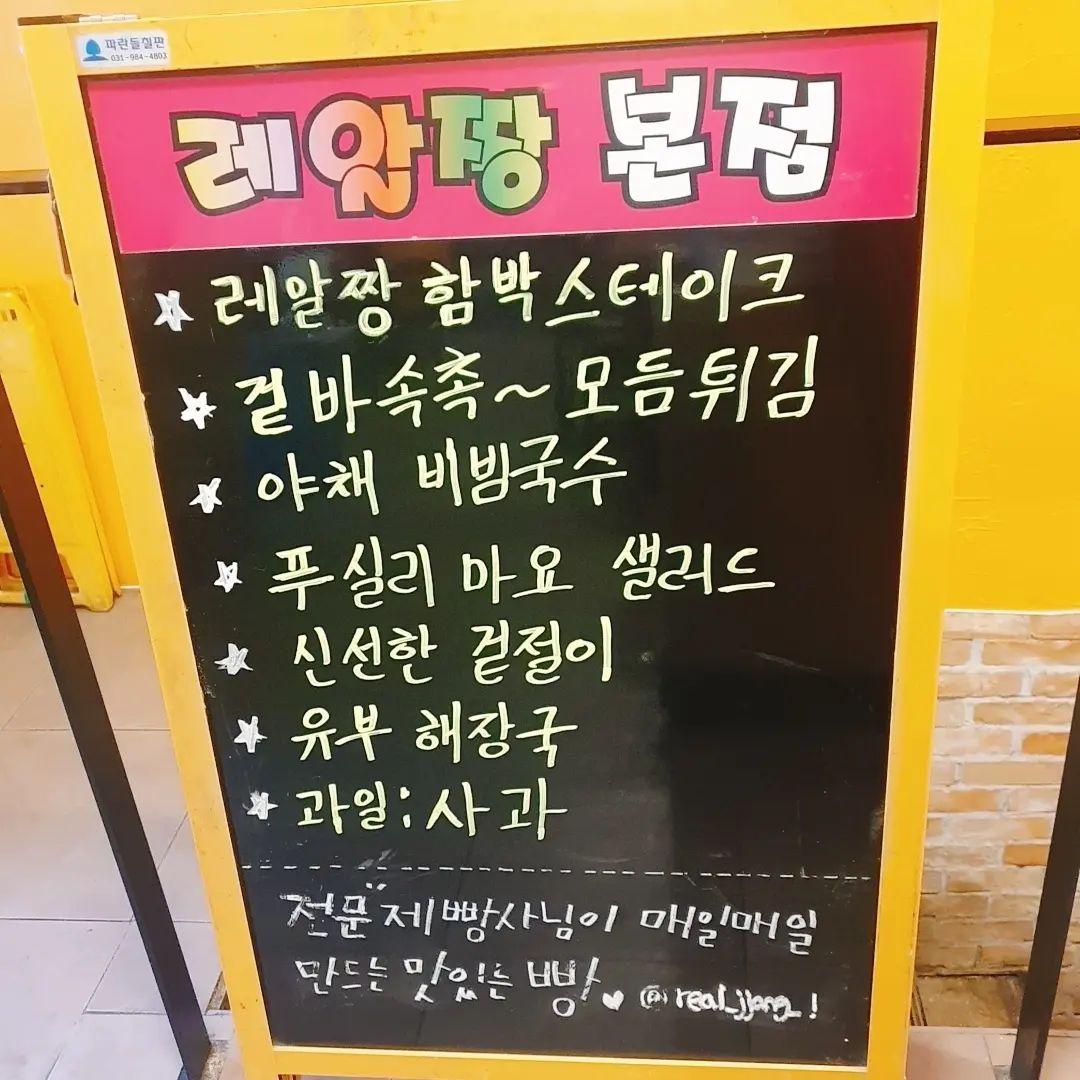 파란들칠판
031-984-4803
레알짱 본점
레알짱 함박스테이크
겉바속촉~모듬튀김
야채 비빔국수
푸실리 마요 샐러드
신선한 겉절이
유부 해장국
과일:사과
전문 제빵사님이 매일매일
만드는 맛있는 빵♥ @real_jjang_!